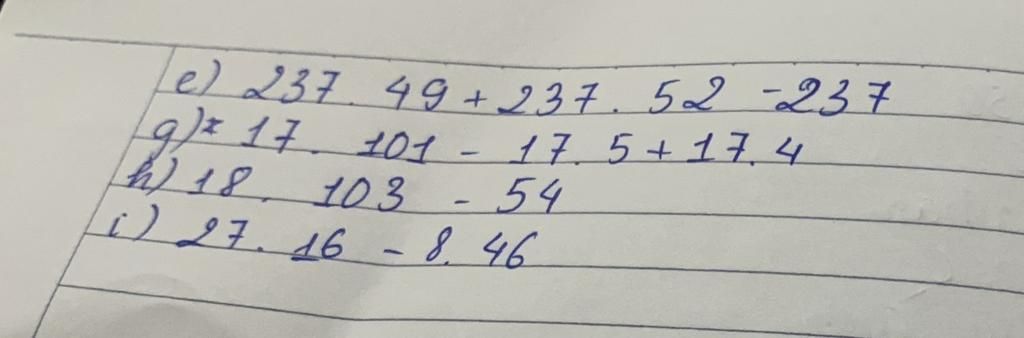 e) 237. 49 + 237. 52 - 237
g) 17. 101 - 17. 5 + 17. 4
h) 18. 103 - 54
i) 27. 16 - 8. 46